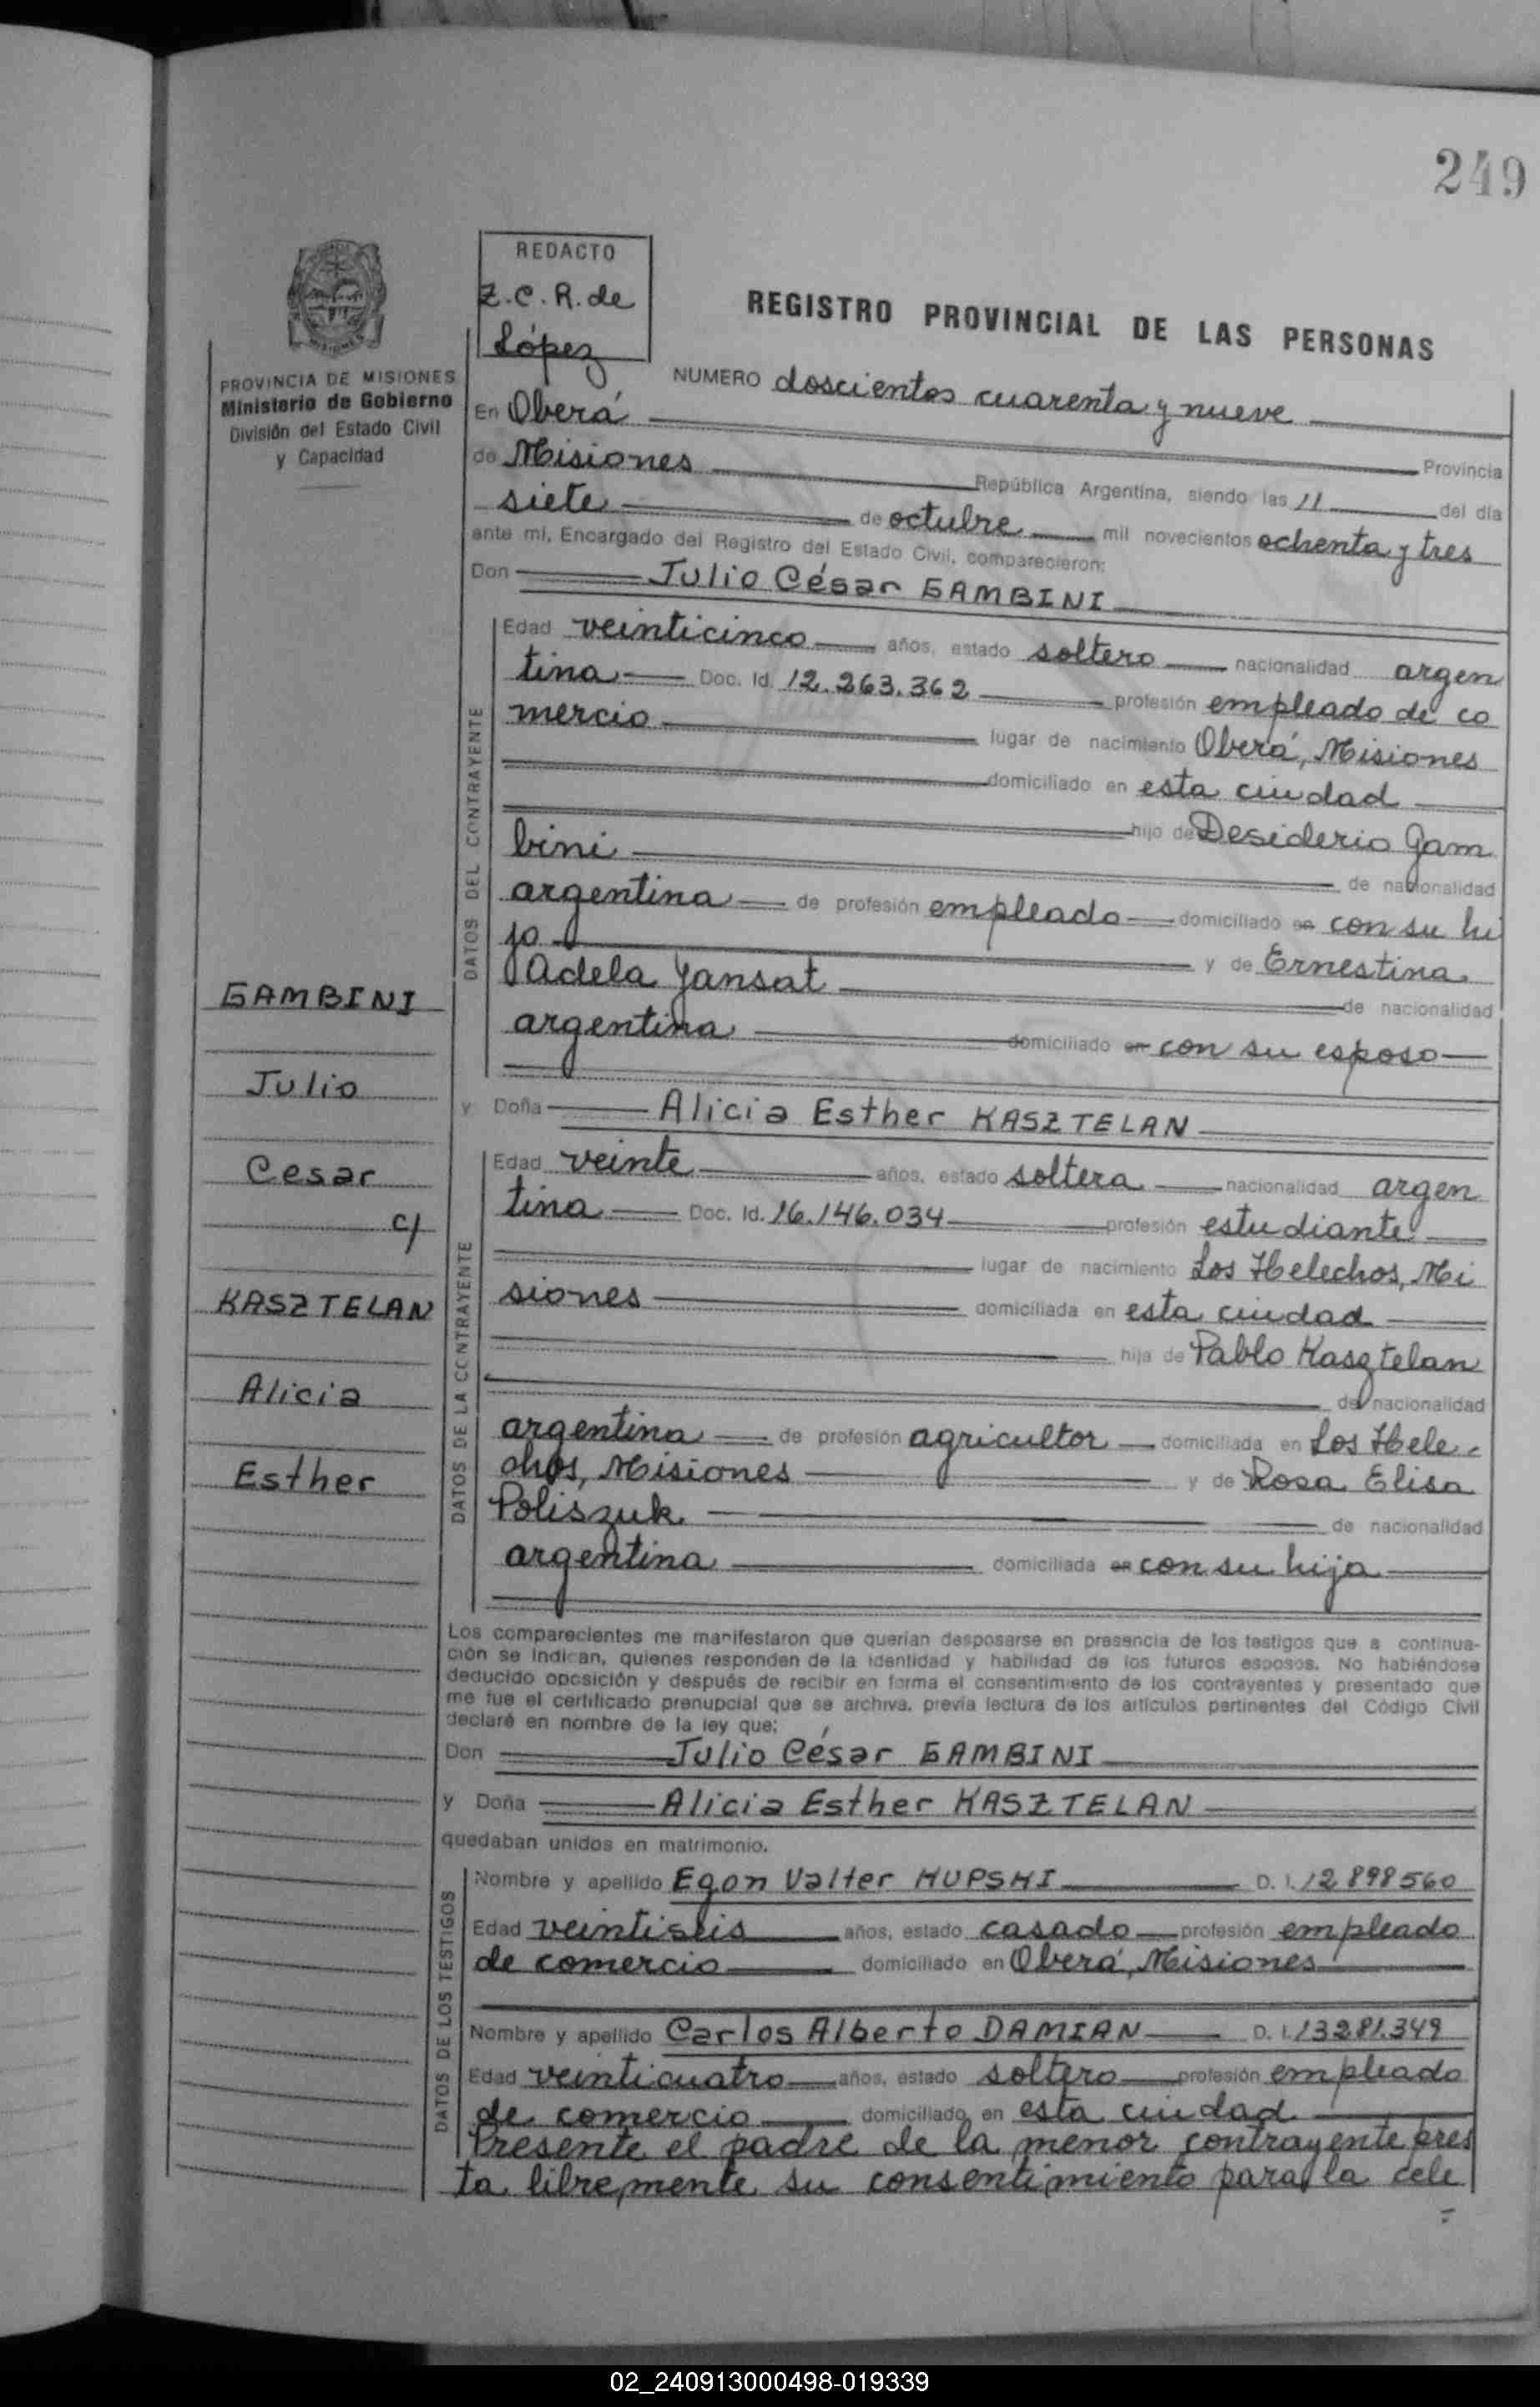 249
REDACTO
Z.C.R. de
López
REGISTRO PROVINCIAL DE LAS PERSONAS
PROVINCIA DE MISIONES
Ministerio de Gobierno
División del Estado Civil
y Capacidad
NUMERO doscientos cuarenta y nueve
En Oberá Provincia
de Misiones República Argentina, siendo las 11 del día
siete de octubre mil novecientos ochenta y tres
ante mí, Encargado del Registro del Estado Civil, comparecieron:
Don Julio César GAMBINI
DATOS DEL CONTRAYENTE
Edad veinticinco años, estado soltero nacionalidad argen
tina Doc. Id. 12.263.362 profesión empleado de co
mercio lugar de nacimiento Oberá, Misiones
domiciliado en esta ciudad
hijo de Desiderio Gam
bini de nacionalidad
argentina de profesión empleado domiciliado en con su hi
jo y de Ernestina
Adela Yansat de nacionalidad
argentina domiciliado en con su esposo
GAMBINI
Julio
Cesar
c/
KASZTELAN
Alicia
Esther
y Doña Alicia Esther KASZTELAN
DATOS DE LA CONTRAYENTE
Edad veinte años, estado soltera nacionalidad argen
tina Doc. Id. 16.146.034 profesión estudiante
lugar de nacimiento Los Helechos, Mi
siones domiciliada en esta ciudad
hija de Pablo Kasztelan
de nacionalidad
argentina de profesión agricultor domiciliada en Los Hele
chos, Misiones y de Rosa Elisa
Poliszuk de nacionalidad
argentina domiciliada en con su hija
Los comparecientes me manifestaron que querían desposarse en presencia de los testigos que a continua-
ción se indican, quienes responden de la identidad y habilidad de los futuros esposos. No habiéndose
deducido oposición y después de recibir en forma el consentimiento de los contrayentes y presentado que
me fue el certificado prenupcial que se archiva, previa lectura de los artículos pertinentes del Código Civil
declaré en nombre de la ley que:
Don Julio César GAMBINI
y Doña Alicia Esther KASZTELAN
quedaban unidos en matrimonio.
DATOS DE LOS TESTIGOS
Nombre y apellido Egon Valter KUPSKI D. I. 12898560
Edad veintiseis años, estado casado profesión empleado
de comercio domiciliado en Oberá, Misiones
Nombre y apellido Carlos Alberto DAMIAN D. I. 13281.349
Edad veinticuatro años, estado soltero profesión empleado
de comercio domiciliado en esta ciudad
Presente el padre de la menor contrayente pres
ta libremente su consentimiento para la cele
02_240913000498-019339